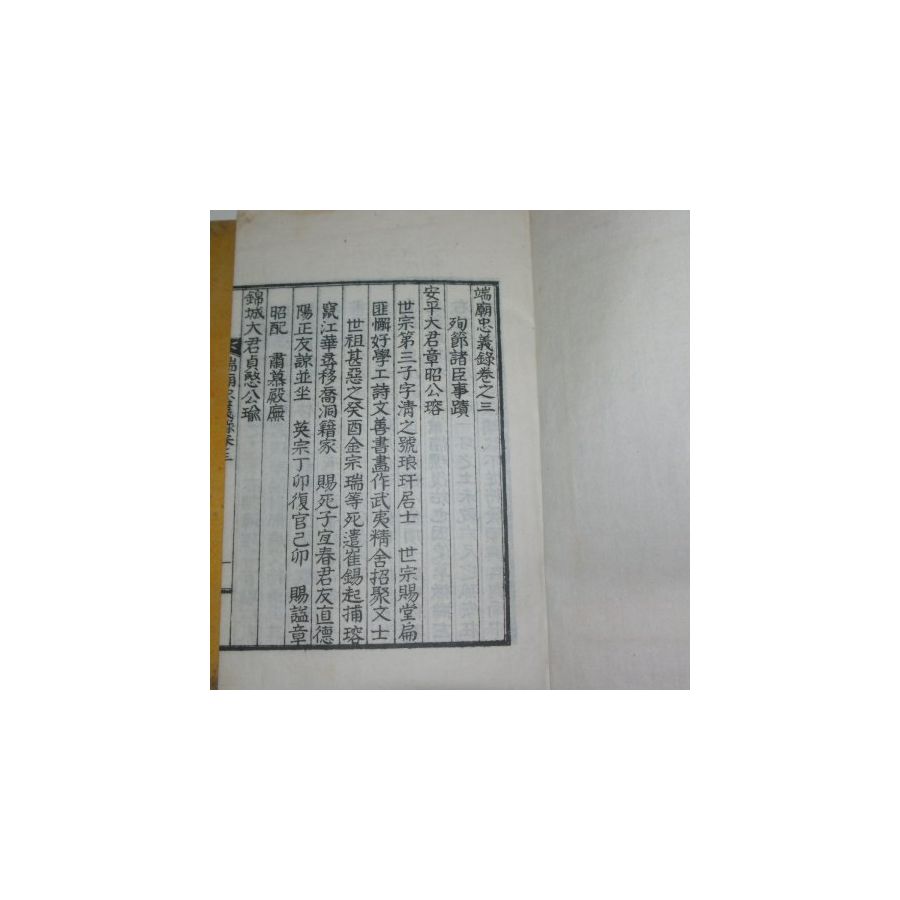 端廟忠義錄卷之三
殉節諸臣事蹟
安平大君章昭公瑢
世宗第三子字淸之號琅玕居士 世宗賜堂扁
匪懈好學工詩文善書畫作武夷精舍招聚文士
世祖甚惡之癸酉金宗瑞等死遣崔錫起捕瑢
竄江華尋移喬洞籍家 賜死子宜春君友直德
陽正友諒並坐 英宗丁卯復官己卯 賜諡章
昭配 肅慕殿廡
錦城大君貞愍公瑜
端廟忠義錄卷三 一